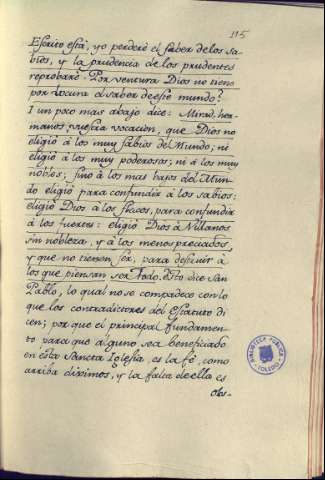 115
Escrito está, yo perderé el saber de los sa-
bios, y la prudencia de los prudentes
reprobaré. Por ventura Dios no tiene
por locura el saber de este mundo?
I un poco mas abajo dice: Mirad, her-
manos vuestra vocacion, que Dios no
eligió á los muy sábios del Mundo; ni
eligió á los muy poderosos; ni á los muy
nobles; sino á los mas bajos del Mun-
do eligió para confundir á los sabios;
eligió Dios á los flacos, para confundir
á los fuertes: eligió Dios á Villanos
sin nobleza, y á los menospreciados,
y que no tienen ser, para destruir á
los que piensan ser todo. Esto dice San
Pablo, lo qual no se compadece con lo
que los contradictores del Estatuto di
cen; por que el principal fundamen-
to para que alguno sea beneficiado
en ésta Sancta Iglesia, es la fé, como
arriba diximos, y la falta de ella es
obs-
BIBLIOTECA PUBLICA
TOLEDO